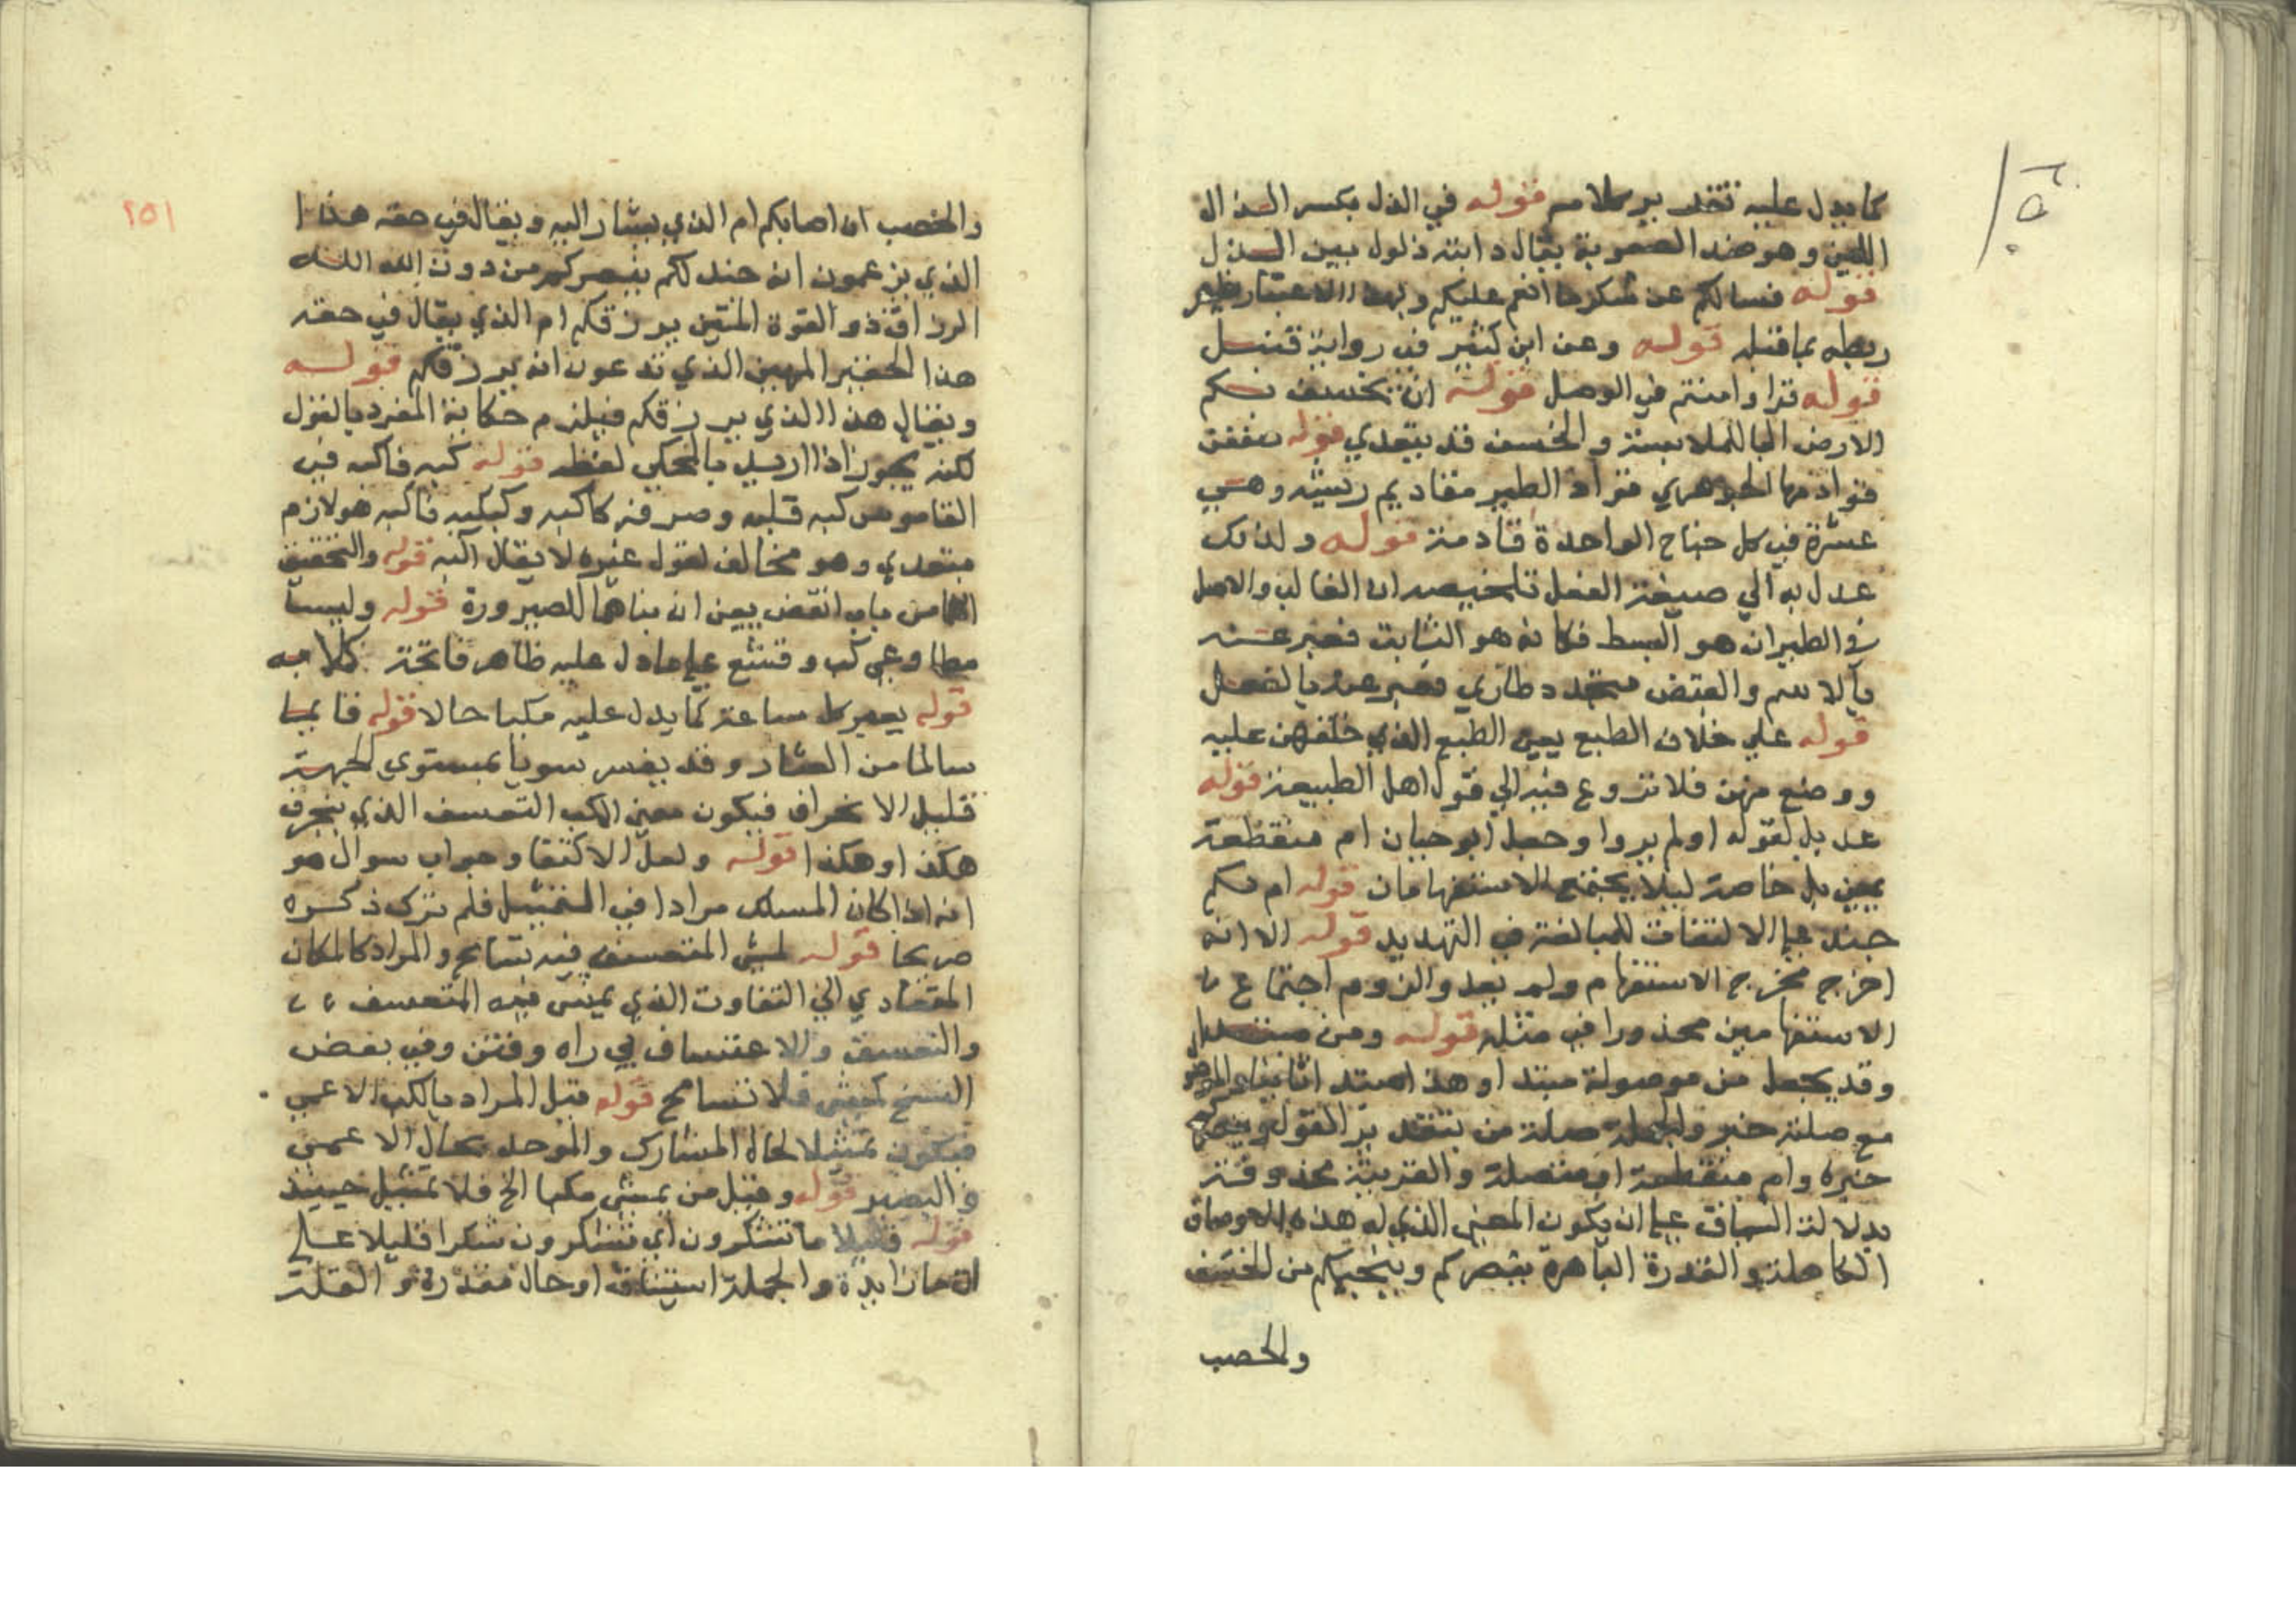 كما يدل عليه تقدير كلامه قوله في الذل بكسر الذال
اللين وهو ضد الصعوبة يقال دابة ذلول بين الذل
قوله فسالكم عن شكر ما انعم عليكم وبهذا الاعتبار
ربطه بما قبله قوله وعن ابن كثير في رواية قنبل
قوله قرا وامنتم في الوصل قوله ان يخسف بكم
الارض البا للملابسة والخسف قد يتعدي قوله صففن
قوادمها الجوهري قوادم الطير مقاديم ريشه وهي
عشرة في كل جناح الواحدة قادمة قوله ولذلك
عدل به الي صيغة الفعل تلخيصه ان الغالب والاصل
في الطيران هو البسط فكانه هو الثابت فعبر عنه
بالاسم والقبض متجدد طاري فعبر عنه بالفعل
قوله علي خلاف الطبع يعني الطبع الذي خلقهن عليه
ووضع فيهن فلا نزوع فيه الي قول اهل الطبيعة قوله
عديل لقوله اولم يروا وجعل ابو حيان ام منقطعة
بمعني بل خاصة ليلا يجتمع الاستفهامان قوله ام لكم
جند علي الالتفات للمبالغة في التهديد قوله الا انه
اخرج مخرج الاستفهام ولم يعدوا لزوم اجتماع
الاستفهامين محذورا في مثله قوله ومن مستقل
وقد يجعل من موصولة مبتدا وهذا مبتدا ثانيا
مع صلته خبر والجملة صلة من بتقدير القول
خبره وام منقطعة او متصلة والقرينة محذوفة
بدلالة السياق علي ان يكون المعني الذي له هذه الاوصاف
الكاملة والقدرة الباهرة ينصركم وينجيكم من الخسف
والحصب
٢٥١
والحصب ان اصابكم ام الذي يشار اليه ويقال في حقه هذا
الذي يزعمون انه جند لكم ينصركم من دون الله الله
الرزاق ذو القوة المتين يرزقكم ام الذي يقال في حقه
هذا الحقير المهين الذي تدعون انه يرزقكم قوله
ويقال هذا الذي يرزقكم فيلزم حكاية المفرد بالقول
لكنه يجوز اذا اريد بالمحكي لفظه قوله كبه فاكب في
القاموس كبه قلبه وصرفه كاكبه وكبكبه فاكب هو لازم
متعدي وهو مخالف لقول غيره لا يقال اكبه قوله والتحقيق
انهما من باب انفض يعني ان بناهما للصيرورة قوله وليسا
مطاوعي كب وقشع علي ما دل عليه ظاهر فاتحة كلامه
قوله يعثر كل ساعة كما يدل عليه مكبا حالا قوله قايما
سالما من العثار وقد يفسر سويا بمستوي الجهة
قليل الانحراف فيكون معني المكب المتعسف الذي ينحرف
هكذا وهكذا قوله ولعل الاكتفا وجواب سوال هو
انه اذا كان المسلك مرادا في التمثيل فلم ترك ذكره
صريحا قوله لمشي المتعسف فيه تسامح والمراد كالمكان
المتعادي الي التفاوت الذي يمشي فيه المتعسف
والتعسف والاعتساف بي راه وفتن وفي بعض
النسخ كمشي فلا تسامح قوله قيل المراد بالمكب الاعمي
فيكون تمثيلا لحال المشرك والموحد بحال الاعمي
والبصير قوله وقيل من يمشي مكبا الخ فلا تمثيل حينيذ
قوله قليلا ما تشكرون اي تشكرون شكرا قليلا علي
ان ما زايدة والجملة استيناف او حال مقدرة والقلة